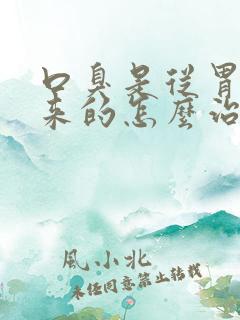 口臭是從胃
來的怎麼治
風小北
未经同意禁止转载